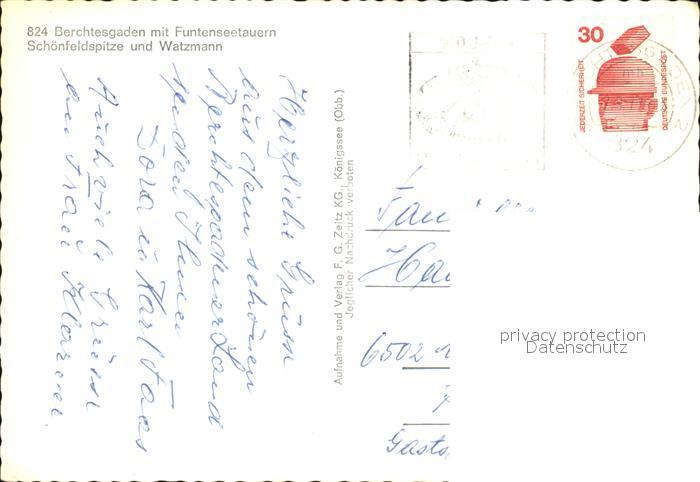 824 Berchtesgaden mit Funtenseetauern
Schönfeldspitze und Watzmann
Herzliche Grüsse
aus dem schönen
Berchtesgadner Land
senden Ihnen
Dora u. Karl
Auch viele Grüsse
an Frau
Aufnahme und Verlag F. G. Zeitz KG., Königssee (Obb.)
Jeglicher Nachdruck verboten
30
JEDERZEIT SICHERHEIT
DEUTSCHE BUNDESPOST
824
Fam
Ha
6502
Gasts
privacy protection
Datenschutz